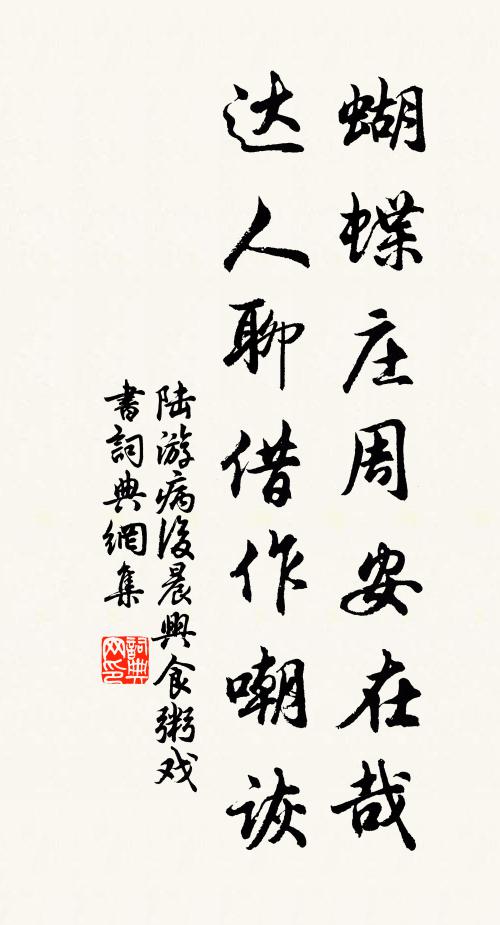 蝴蝶庄周安在哉
达人聊借作嘲诙
陆游病後晨興食粥戏
書詞典網集
詞典
网印